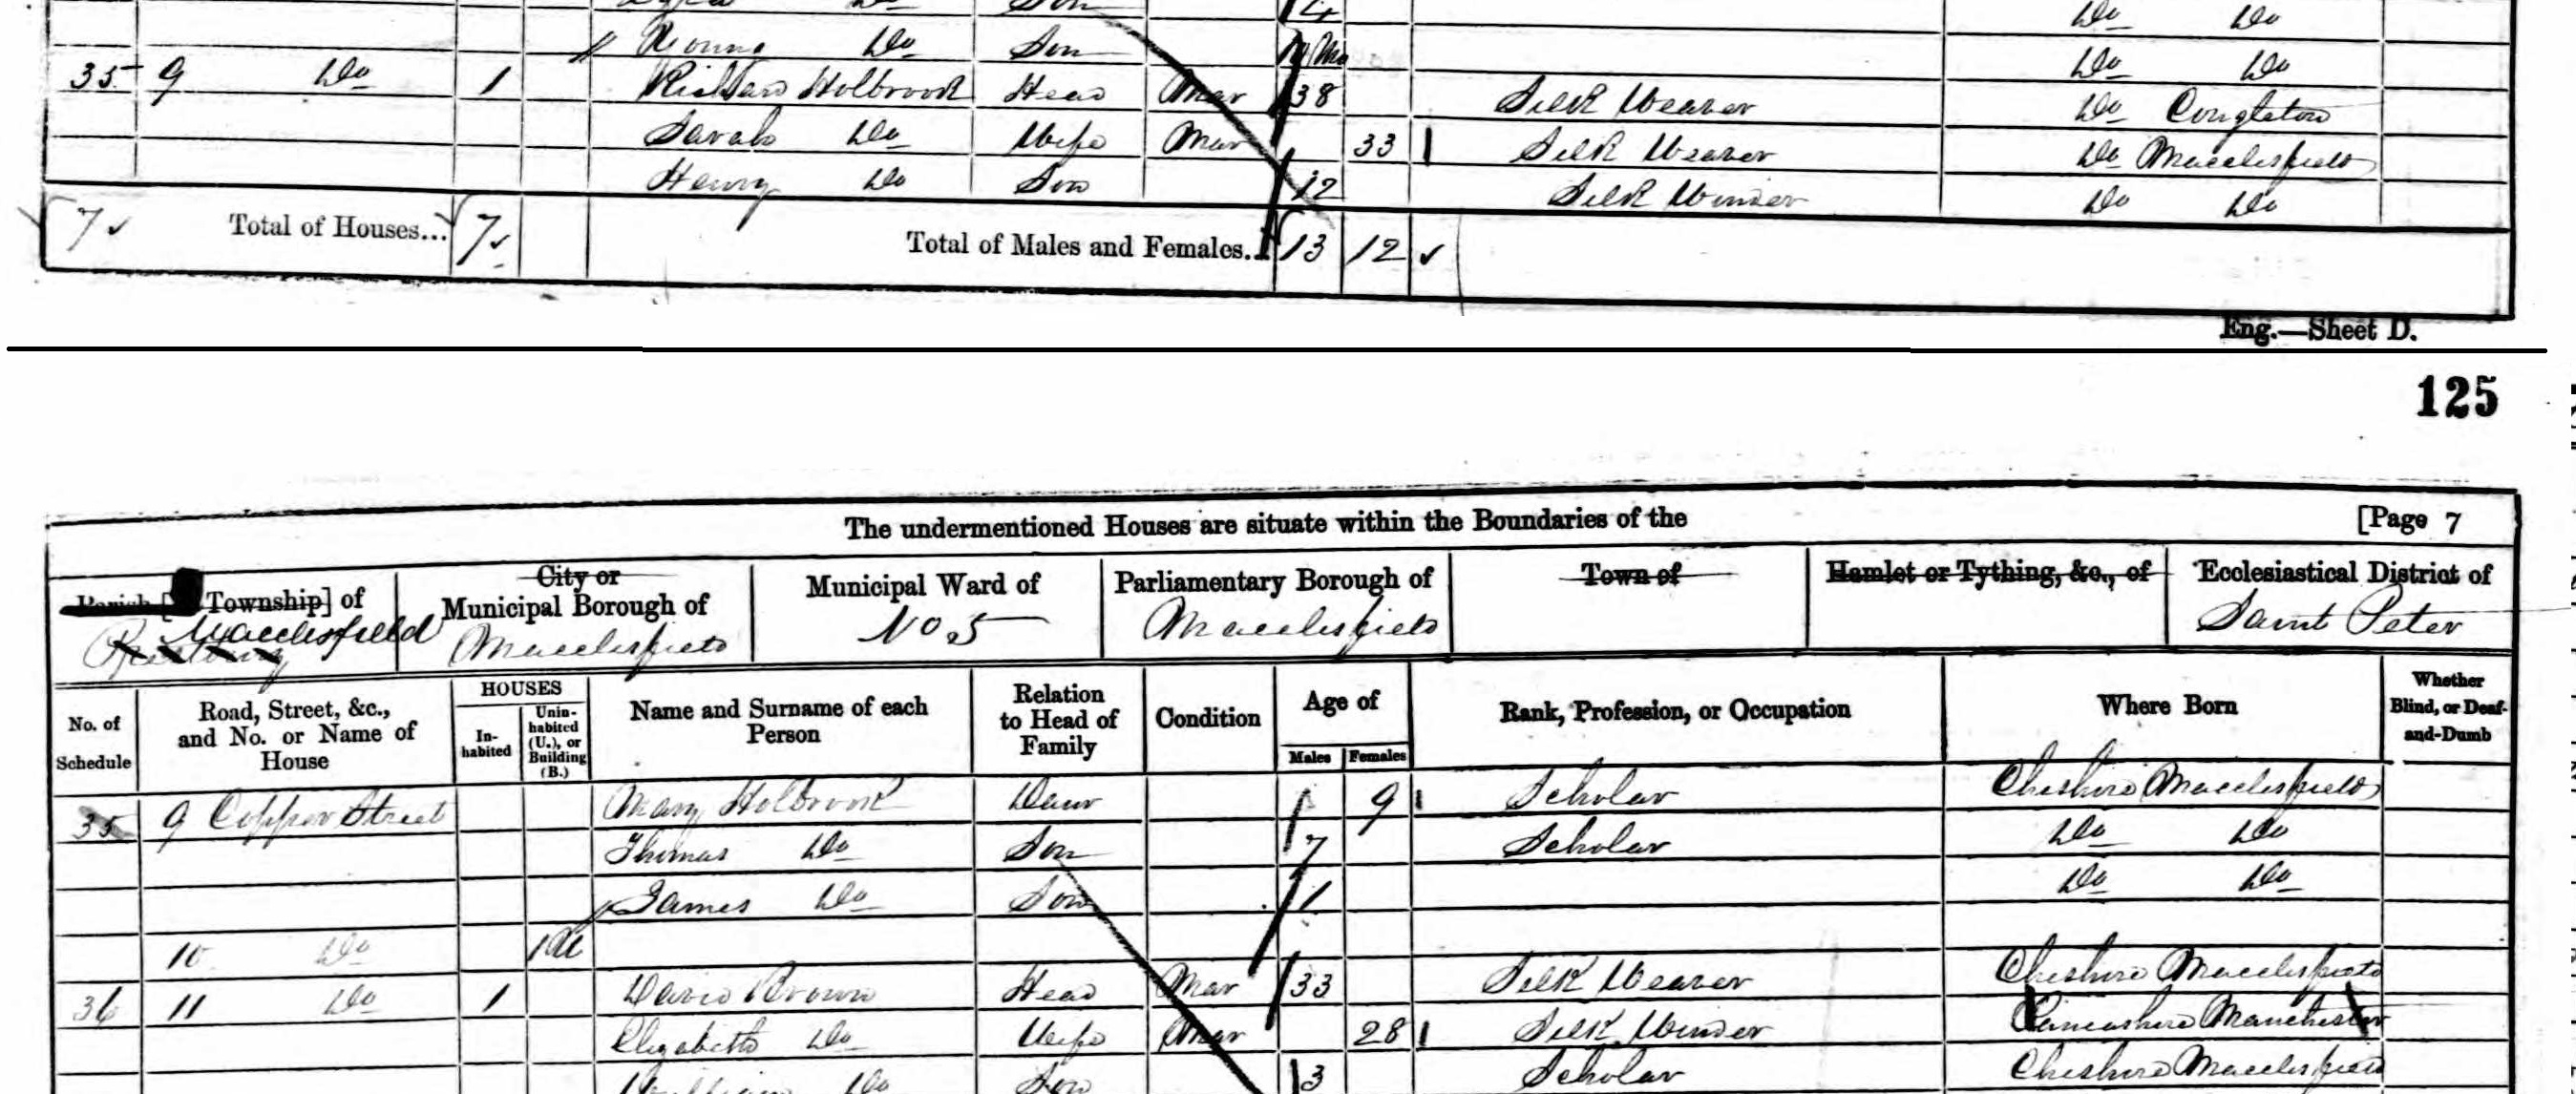 Son 4 Do Do
Do Son Do Do
35 9 Do 1 Richard Holbrook Head Mar 38 Silk Weaver Do Congleton
Sarah Do Wife Mar 33 Silk Weaver Do Macclesfield
Henry Do Son 12 Silk Winder Do Do
7 Total of Houses... 7 Total of Males and Females.. 13 12
Eng.—Sheet D.
125
The undermentioned Houses are situate within the Boundaries of the [Page 7
Parish [Township] of City or Municipal Borough of Municipal Ward of Parliamentary Borough of Town of Hamlet or Tything, &c., of Ecclesiastical District of
Macclesfield Macclesfield No 5 Macclesfield Saint Peter
No. of Schedule Road, Street, &c., and No. or Name of House HOUSES In-habited Unin-habited (U.), or Building (B.) Name and Surname of each Person Relation to Head of Family Condition Age of Males Females Rank, Profession, or Occupation Where Born Whether Blind, or Deaf-and-Dumb
35 9 Copper Street Mary Holbrook Daur 9 Scholar Cheshire Macclesfield
Thomas Do Son 7 Scholar Do Do
James Do Son 1 Do Do
10 Do 1 U
36 11 Do 1 David Brown Head Mar 33 Silk Weaver Cheshire Macclesfield
Elizabeth Do Wife Mar 28 Silk Winder Lancashire Manchester
William Do Son 3 Scholar Cheshire Macclesfield